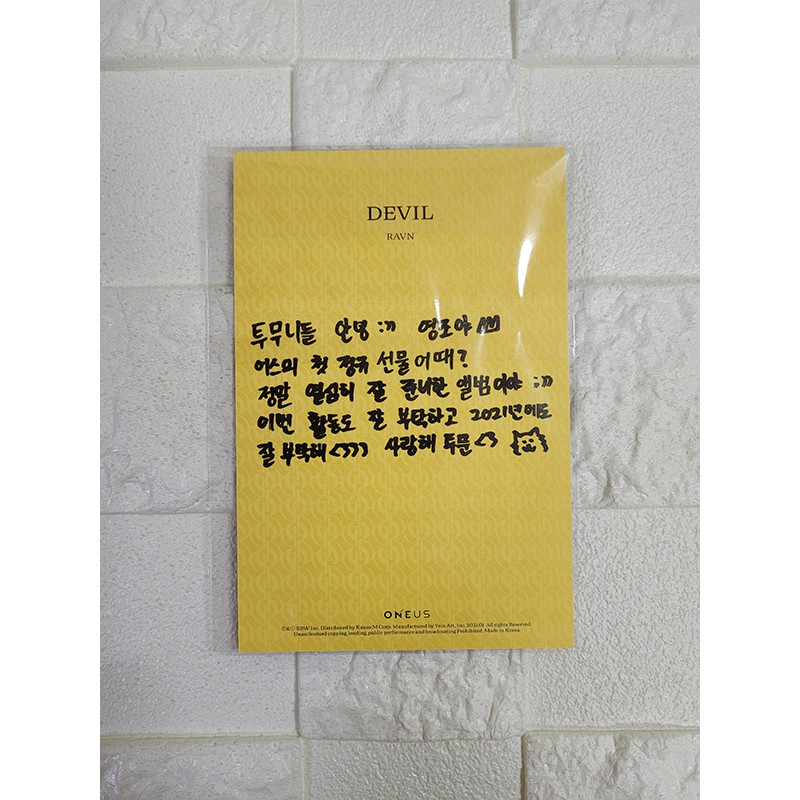 DEVIL
RAVN
투무니들 안녕 :)) 영조야
어스의 첫 정규 선물 어때?
정말 열심히 잘 준비한 앨범이야 :))
이번 활동도 잘 부탁하고 2021년에도
잘 부탁해 <3333 사랑해 투문 <3
ONEUS
Ⓟ&© RBW Inc. Distributed by Kakao M Corp. Manufactured by Yein Art, Inc. 2021.01 All rights Reserved.
Unauthorized copying, lending, public performance and broadcasting Prohibited. Made in Korea.